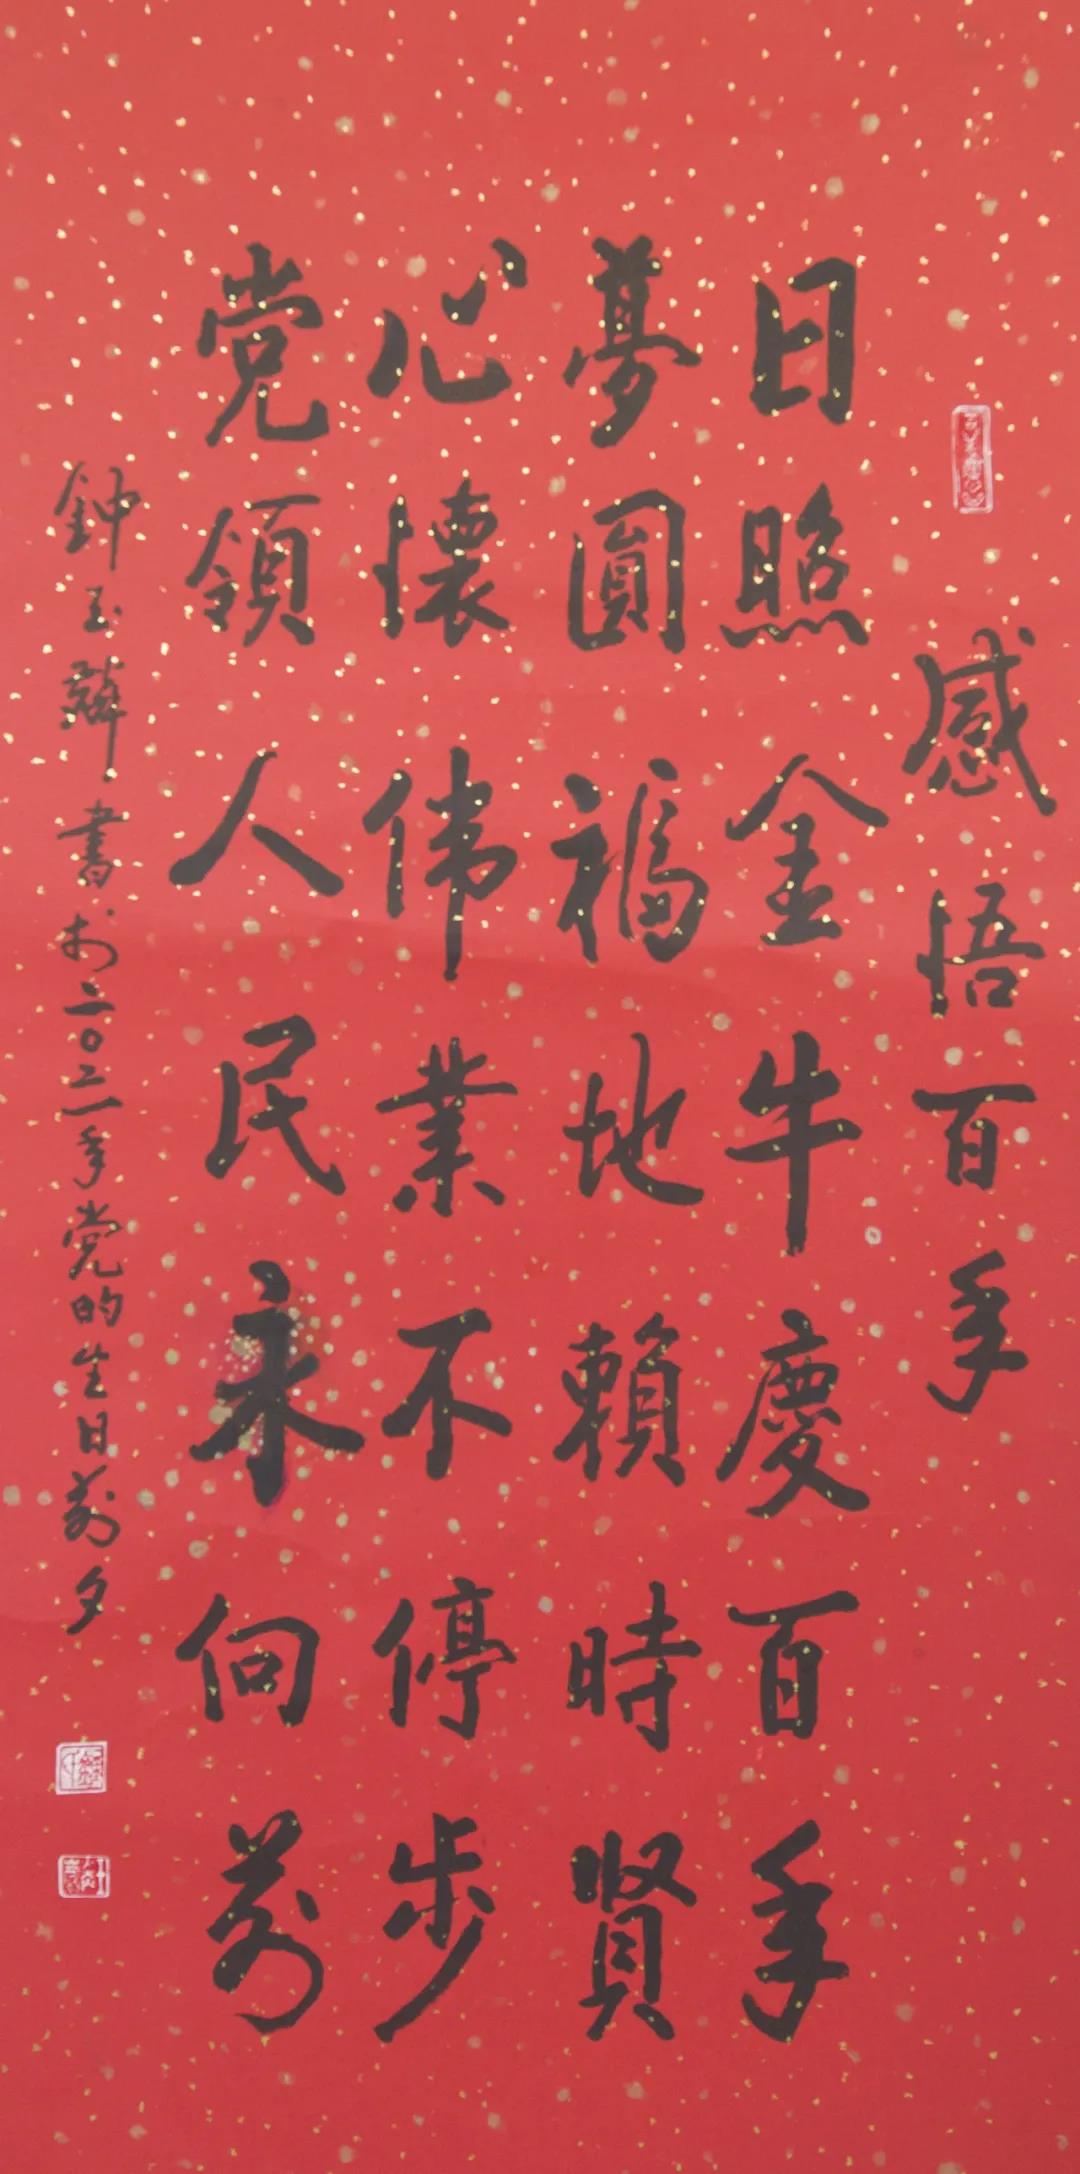 感悟百年
日照金牛慶百年
夢圓福地賴時賢
心懷伟業不停步
党領人民永向前
鈡玉麟書於二0二一年党的生日前夕